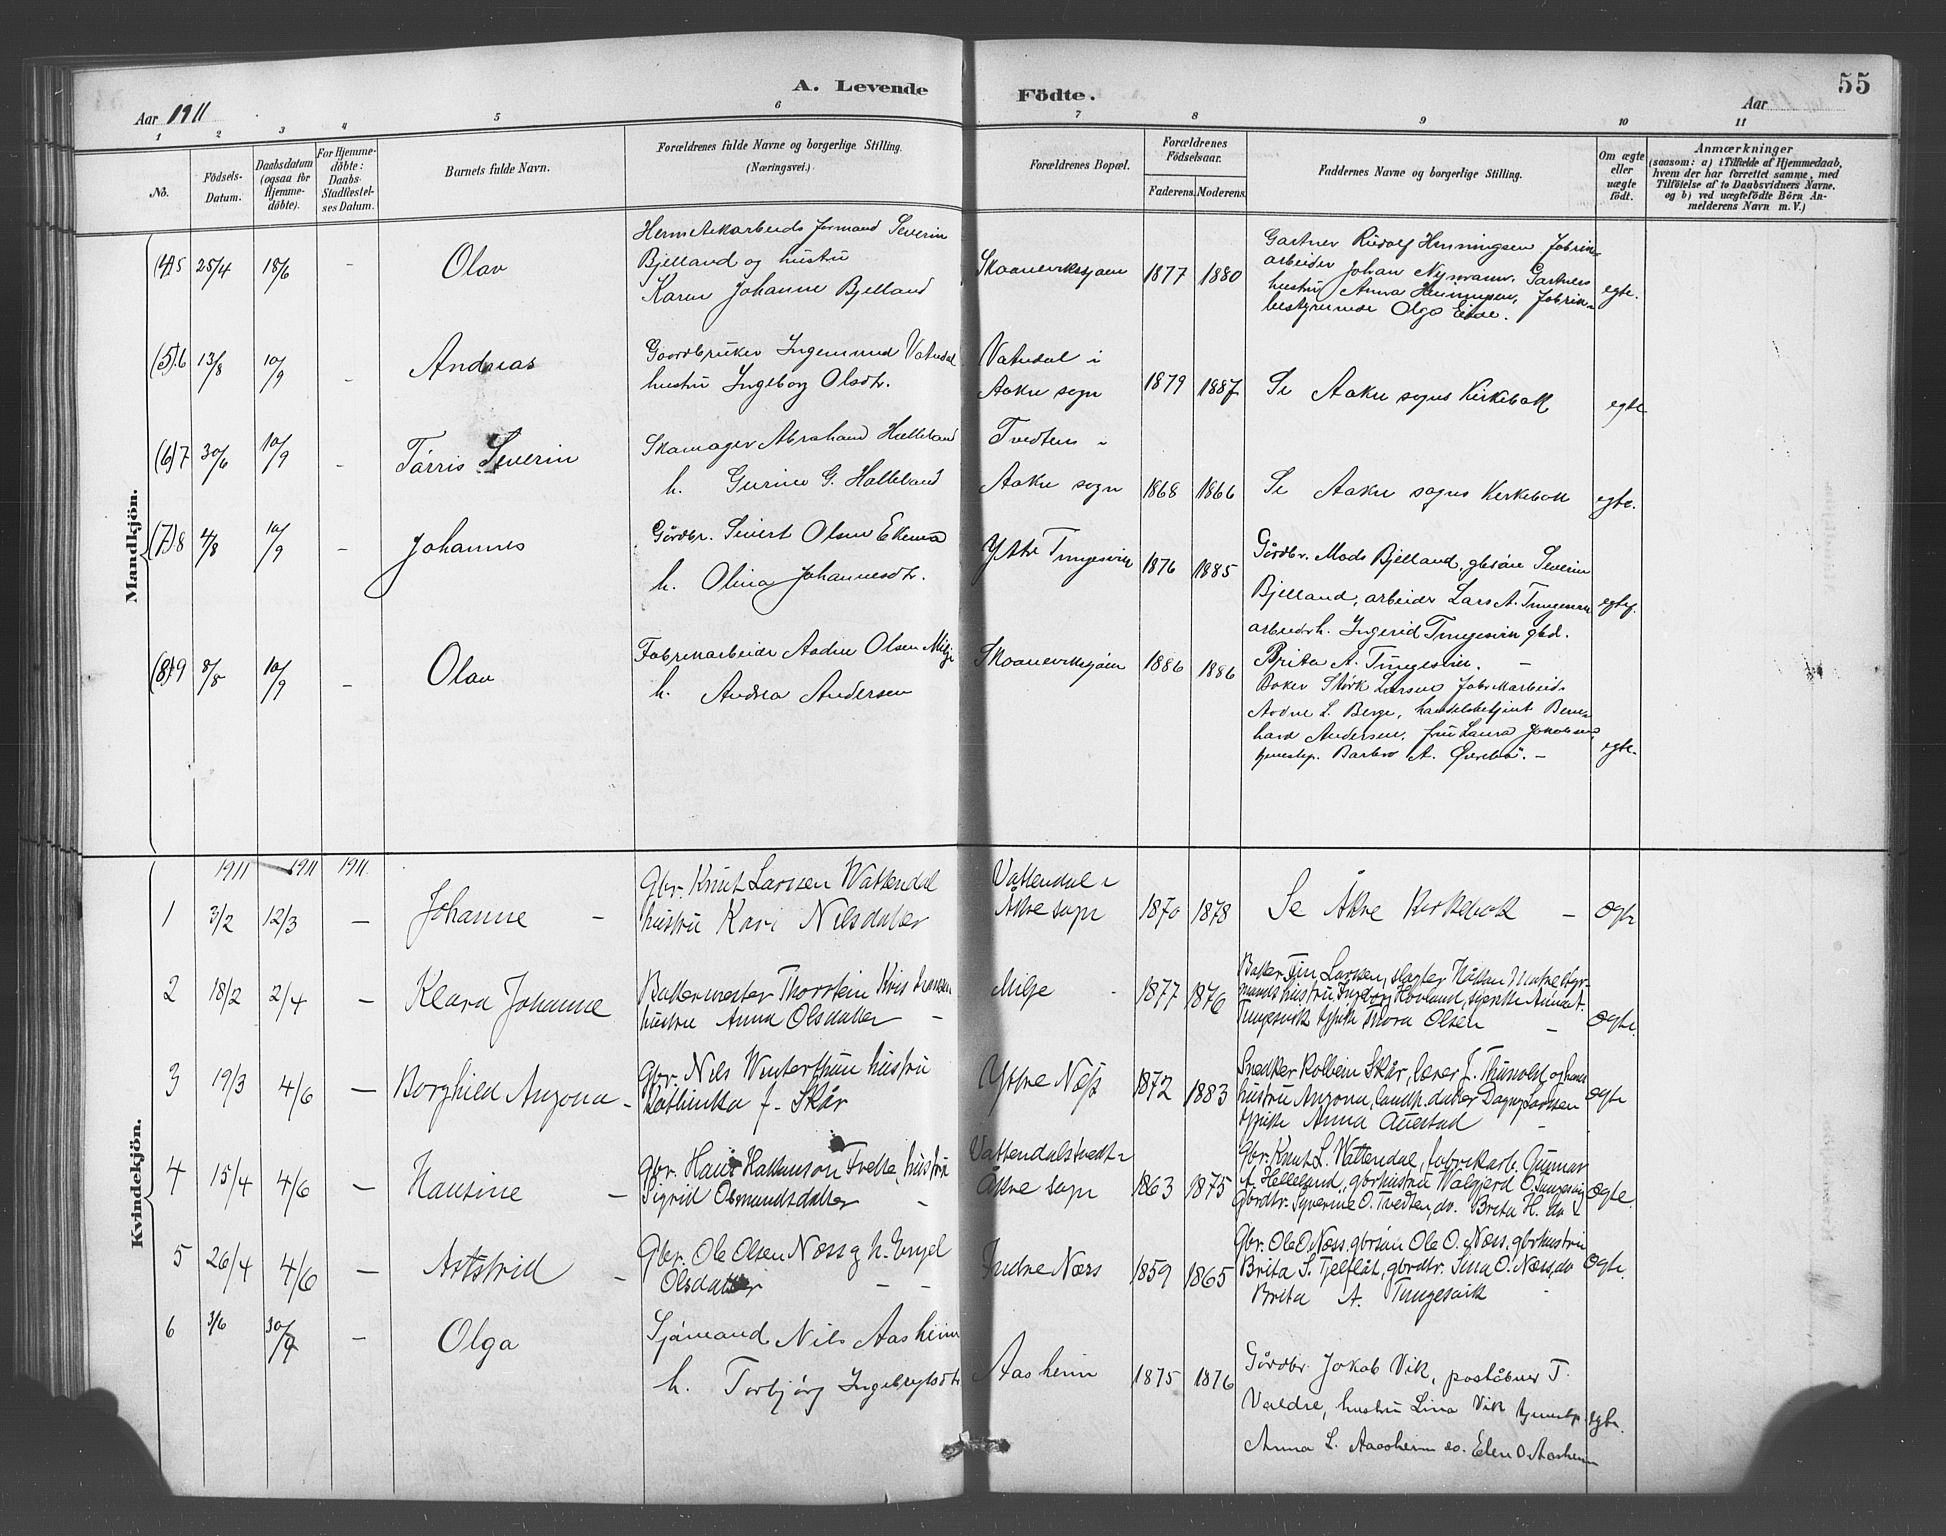 A. Levende Födte.
55
Aar 1911
Aar
1 2 3 4 5 6 7 8 9 10 11
No.
Födsels-Datum.
Daabsdatum (ogsaa for Hjemme-döbte).
For Hjemme-döbte: Daabs-Stadfæstel-ses Datum.
Barnets fulde Navn.
Forældrenes fulde Navne og borgerlige Stilling. (Næringsvei.)
Forældrenes Bopæl.
Forældrenes Födselsaar.
Faderens. Moderens.
Faddernes Navne og borgerlige Stilling.
Om ægte eller uægte födt.
Anmærkninger
(saasom: a) i Tilfælde af Hjemmedaab, hvem der har forrettet samme, med Tilföielse af to Daabsvidners Navne. og b) ved uægtefödte Börn An-melderens Navn m. V.)
Mandkjön.
(4)5 25/4 18/6 - Olav
Hermetikarbeids formand Severin
Bjelland og hustru
Karen Johanne Bjelland
Skaaneviksjøen 1877 1880
Gartner Rudolf Henningsen fabrik-
arbeider Johan Nymann, Gartners
hustru Anna Henningsen, fabrik-
bestyrerinde Olga Eide.
egte.
(5)6 13/8 10/9 - Andreas
Gaardbruker Ingemund Vatndal
hustru Ingeborg Olsdtr.
Vatndal i
Aakre sogn 1879 1887
Se Aakre sogns Kirkebok
egte
(6)7 30/6 10/9 - Tørris Severin
Skomager Abraham Helleland
h. Gurine G. Helleland
Tvedten i
Aakre sogn 1868 1866
Se Aakre sogns Kirkebok
egte.
(7)8 4/8 10/9 - Johannes
Gårdbr. Sivert Olsen Ekemo
h. Olina Johannesdtr.
Ytre Tungesvik 1876 1885
Gårdbr. Mads Bjelland, gbrsøn Severin
Bjelland, arbeider Lars A. Tungesvik
arbeiderh. Ingerid Tungesvik gbd.
Brita A. Tungesvik. -
egte.
(8)9 8/8 10/9 - Olav
Fabrikarbeider Aadne Olsen Milje
h. Andrea Andersen
Skaaneviksjøen 1886 1886
Baker Størk Larsen, fabrikarbeid.
Aadne L. Berge, handelsbetjent Bern-
hard Andersen, fru Laura Jakobsen,
tjenestep. Barbro A. Øvrebø. -
egte.
Kvindekjön.
1911 1911 1911
1 3/2 12/3 - Johanne -
Gbr. Knut Larsen Wattendal
hustru Kari Nilsdatter
Vattendal i
Åkre sogn 1870 1878
Se Åkre Kirkebok -
Ægte
2 18/2 2/4 - Klara Johanne
Bakermester Thorstein Kristensen
hustru Anna Olsdatter -
Milje 1877 1876
Baker Tin Larsen, slagter Håkon
mandshustru Ingborg Hovland, Anna A.
Tungesvik tjpike Thora Olsen -
Ægte.
3 19/3 4/6 - Borghild Anzona -
Gbr. Nils Winterthun hustru
Kathinka f. Skår
Ytre Næss 1872 1883
Snedker Kolbein Skår, lærer J. Thunold, og hans
hustru Anzona, landh. datter Dagny Larssen
tjpike Anna Auestad -
Ægte
4 15/4 4/6 - Hansine -
Gbr. Hans Hakanson Tvette, hustru
Sigrid Osmundsdatter -
Vattendalstvedt i
Åkre sogn 1863 1875
Gbr. Knut L. Wattendal, fabrikarb. Gunnar
A. Helleland, gbrhustru Walgjerd O. Tungesvig
Gbrdtr. Syverine O. Tvedten, do. Brita H. do
Ægte.
5 26/4 4/6 - Astrid -
Gbr. Ole Olsen Næss og h. Engel
Olsdatter - -
Indre Næss 1859 1865
Gbr. Ole O. Næss, gbrsøn Ole O. Næss, gbrhustru
Brita S. Tjelflåt, gbrdtr. Sina O. Næss, do
Brita A. Tungesvik -
Ægte.
6 3/6 30/7 - Olga
Sjømand Nils Aasheim
h. Torbjørg Ingebrigtsdtr
Aasheim 1875 1876
Gårdbr. Jakob Vik, poståbner T.
Valdre, hustru Lina Vik tjenestp.
Anna L. Aasheim do. Elen O Aasheim
egte.